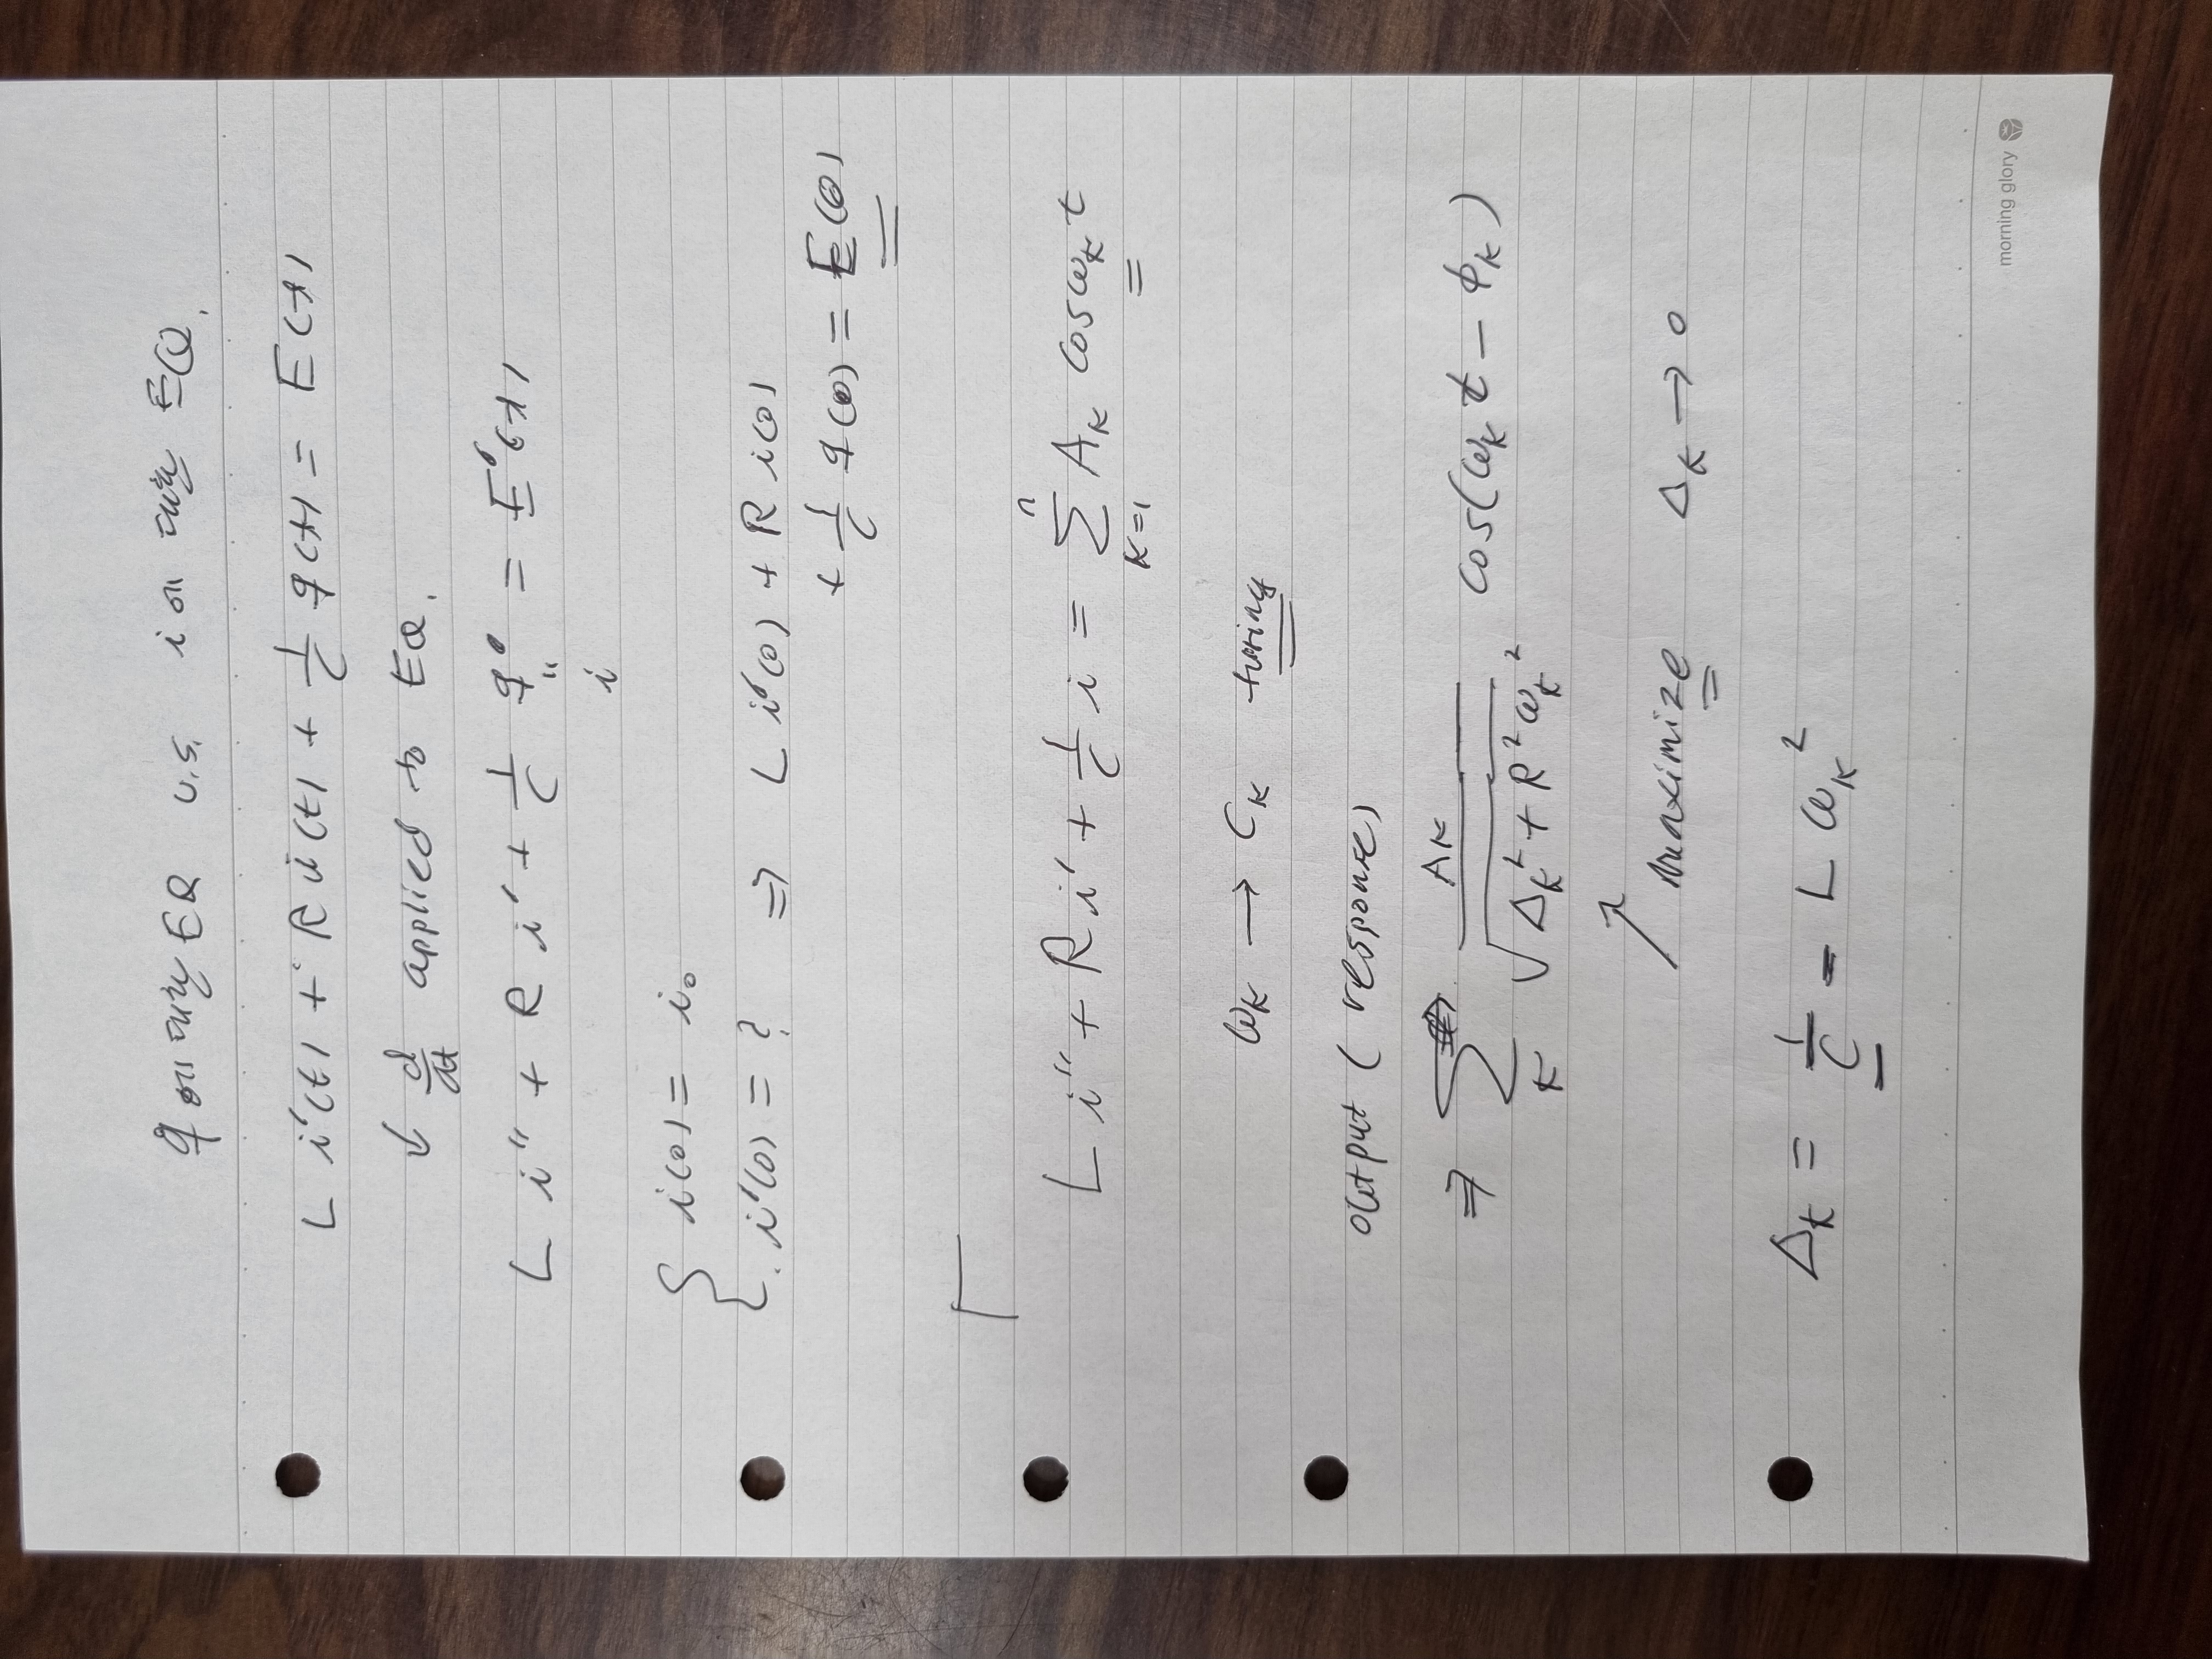 q에 대한 EQ v.s. i에 대한 EQ.
L i'(t) + R i(t) + 1/C q(t) = E(t)
↓ d/dt applied to EQ.
L i'' + R i' + 1/C q' = E'(t)
"
i
{ i(0) = i₀
i'(0) = ? ⇒ L i'(0) + R i(0)
+ 1/C q(0) = E(0)
L i'' + R i' + 1/C i = Σ_{k=1}^{n} A_k cos ω_k t
ω_k → C_k tuning
output (response)
⇒ Σ_k A_k / √(Δ_k² + R² ω_k²) cos(ω_k t − φ_k)
↗ maximize Δ_k → 0
Δ_k = 1/C − L ω_k²
morning glory